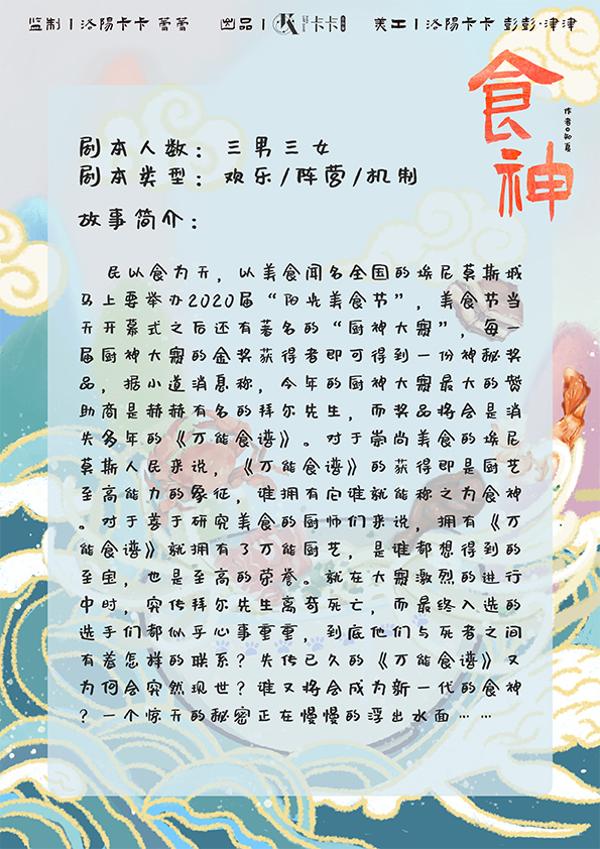 监制 | 洛阳卡卡 蕾蕾 出品 | JK 卡卡 美工 | 洛阳卡卡 彭彭·津津
食神
作者◎知夏
剧本人数：三男三女
剧本类型：欢乐/阵营/机制
故事简介：
民以食为天，以美食闻名全国的埃尼莫斯城
马上要举办2020届“阳光美食节”，美食节当
天开幕式之后还有著名的“厨神大赛”，每一
届厨神大赛的金奖获得者即可得到一份神秘奖
品，据小道消息称，今年的厨神大赛最大的赞
助商是赫赫有名的拜尔先生，而奖品将会是消
失多年的《万能食谱》。对于崇尚美食的埃尼
莫斯人民来说，《万能食谱》的获得即是厨艺
至高能力的象征，谁拥有它谁就能称之为食神
。对于善于研究美食的厨师们来说，拥有《万
能食谱》就拥有了万能厨艺，是谁都想得到的
至宝，也是至高的荣誉。就在大赛激烈的进行
中时，突传拜尔先生离奇死亡，而最终入选的
选手们都似乎心事重重，到底他们与死者之间
有着怎样的联系？失传已久的《万能食谱》又
为何会突然现世？谁又将会成为新一代的食神
？一个惊天的秘密正在慢慢的浮出水面……